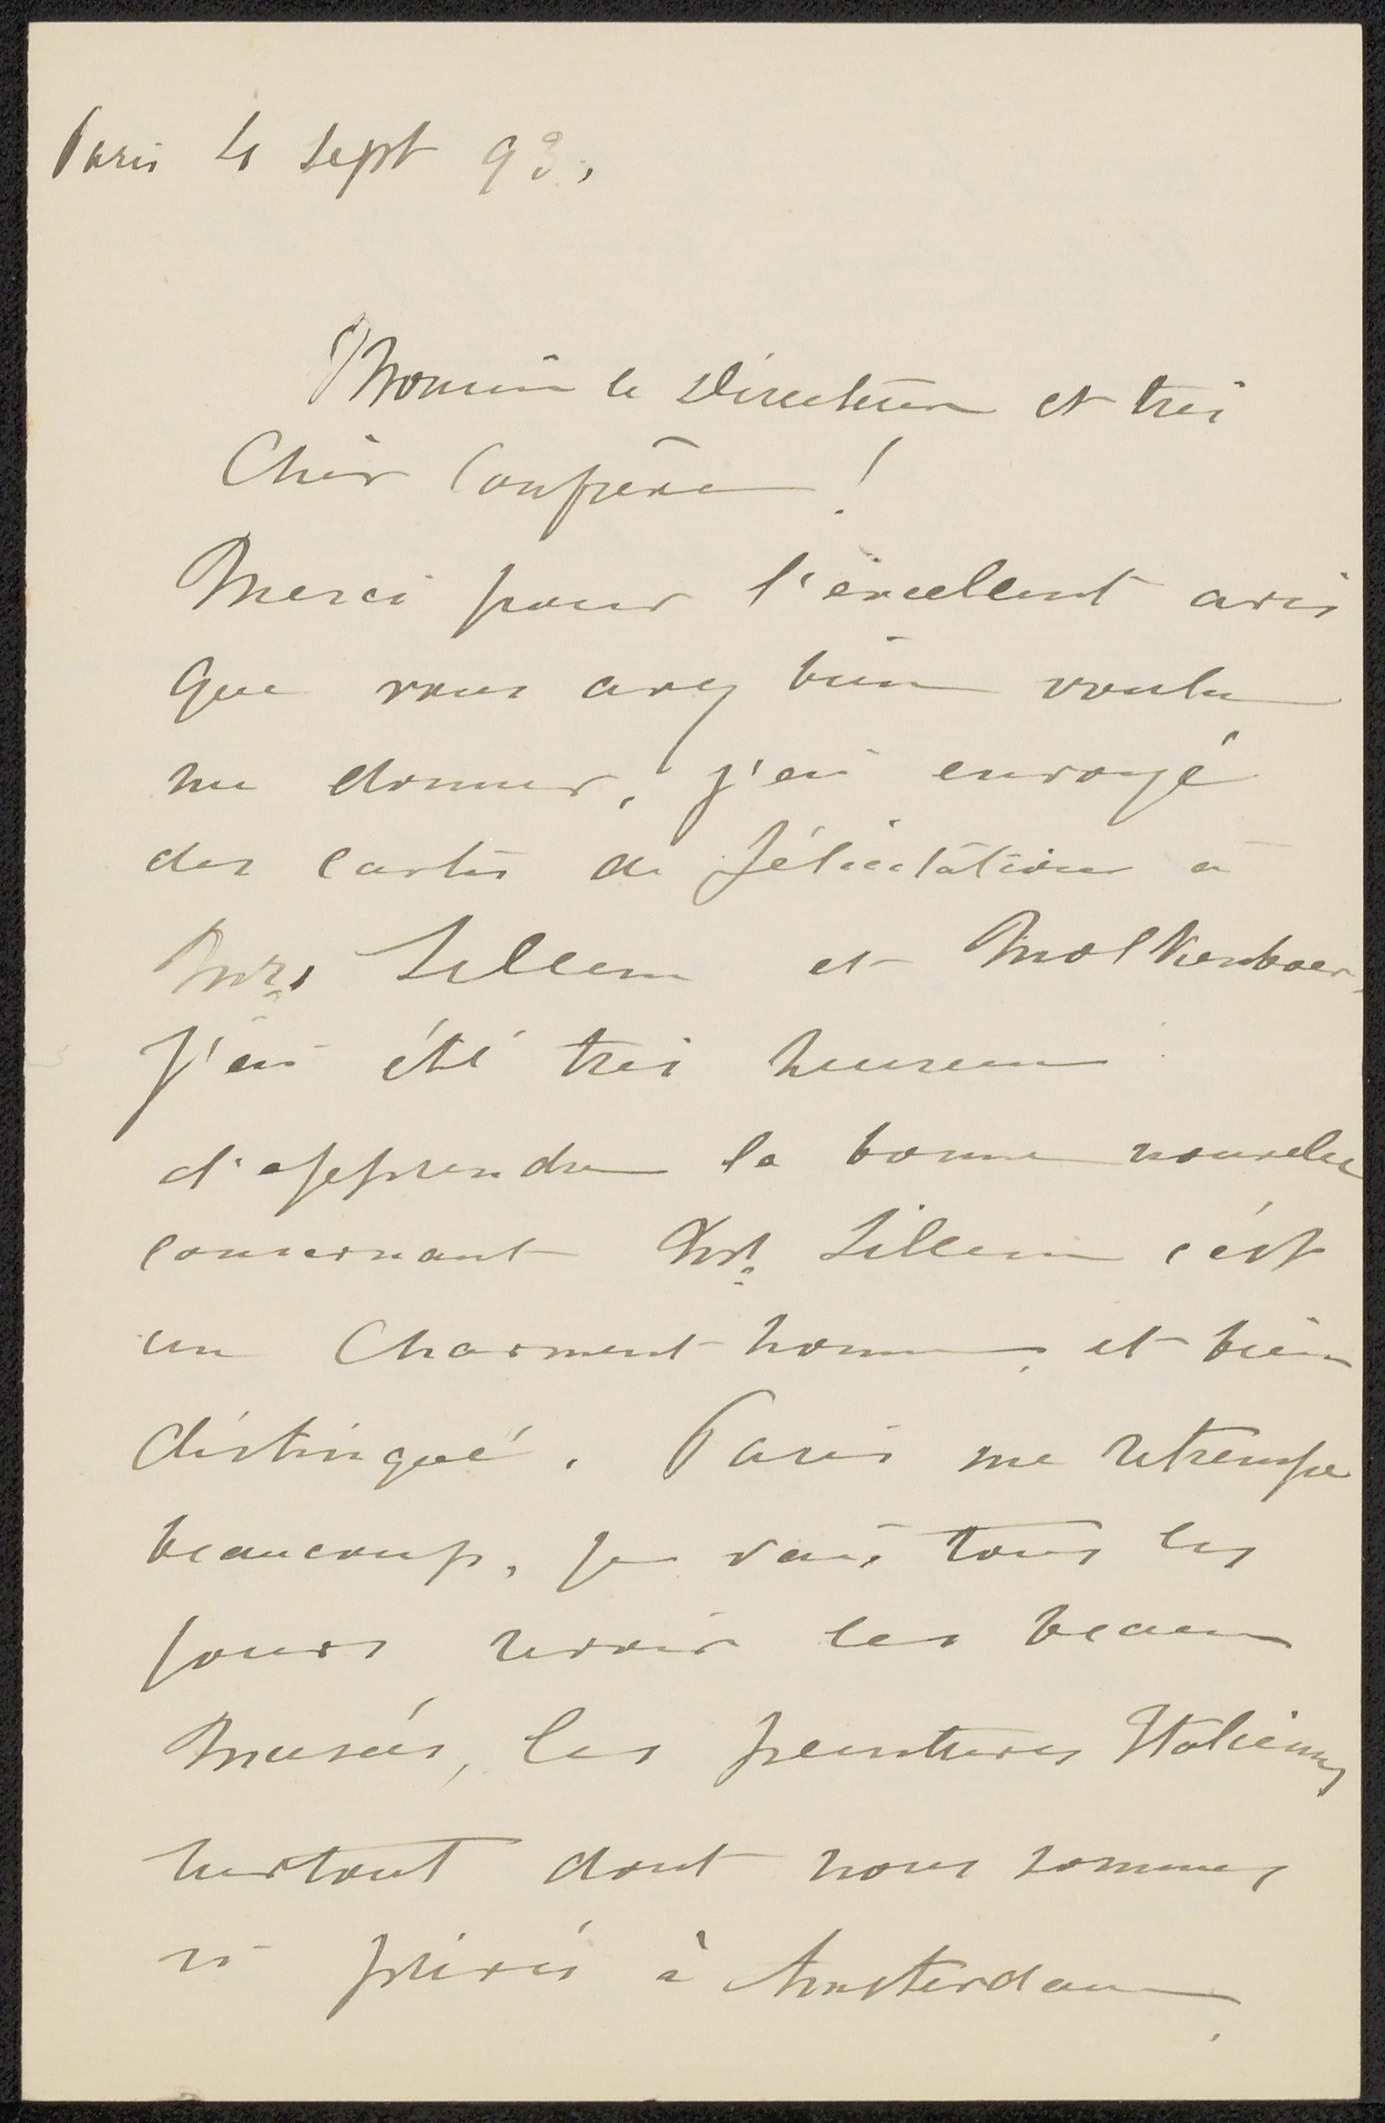 Paris 4 Sept 93,
Monsieur le Directeur et très
Cher Confrère !
Merci pour l'excellent avis
que vous avez bien voulu
me donner, j'ai envoyé
des cartes de félicitation à
Mrs Sillem et Molkenboer,
J'ai été très heureux
d'apprendre la bonne nouvelle
concernant Mr. Sillem c'est
un Charment homme, et bien
distingué. Paris me retrempe
beaucoup, je vais tous les
jours revoir les beaux
Musées, les peintures Italiennes
surtout dont nous sommes
si privés à Amsterdam.